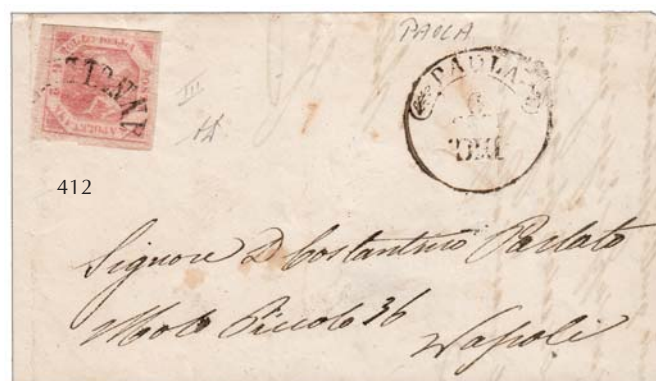 PAOLA
PAOLA
6
DIC
III
412
Signore D Costantino Parlato
Molo Piccolo 36
Napoli